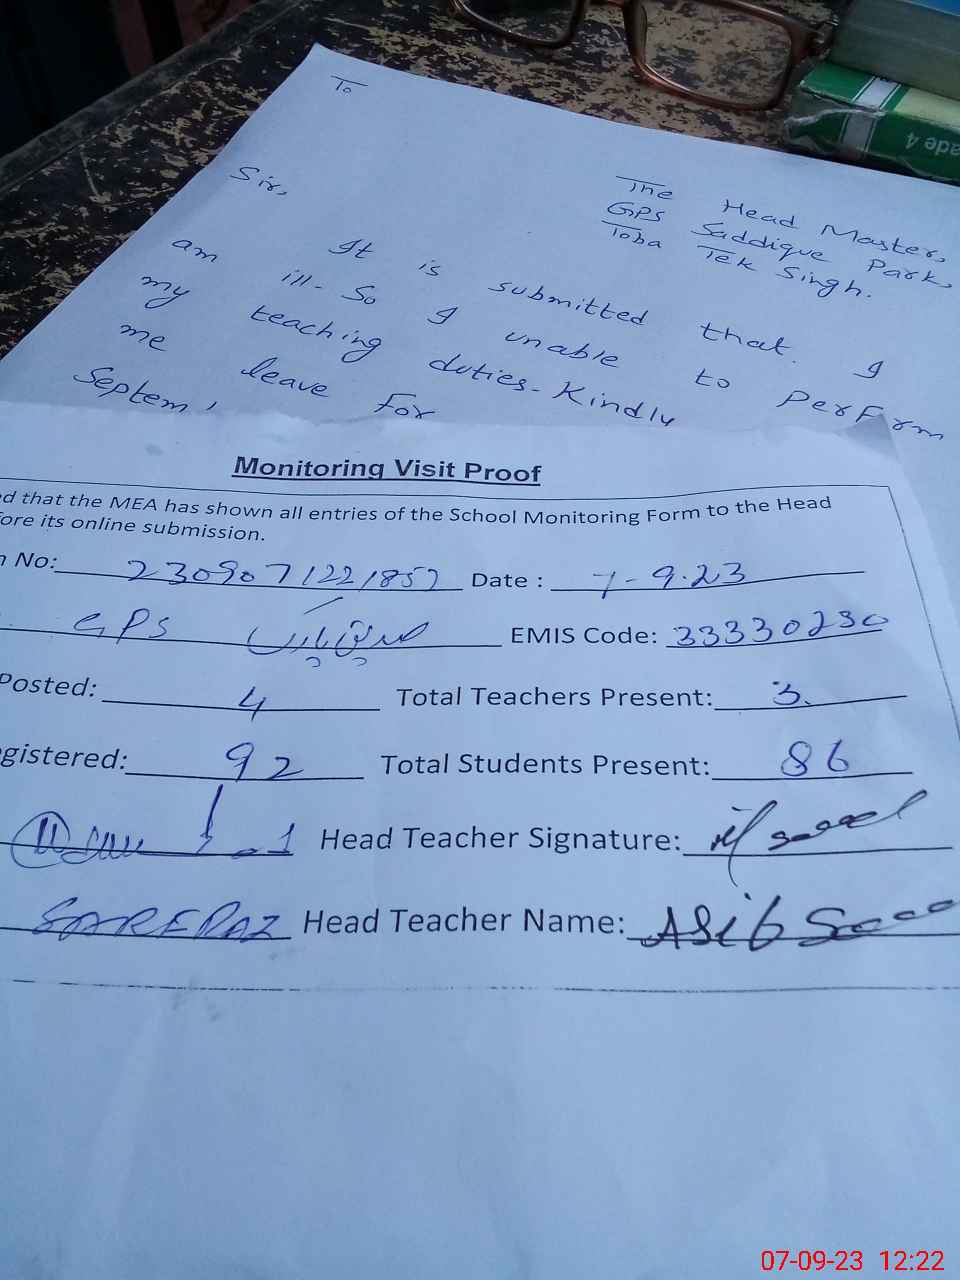 To
The Head Master,
GPS Saddique Park,
Toba Tek Singh.
Sir,
It is submitted that. I
am ill- So I unable to perform
my teaching duties- Kindly
me leave for
Septem
Monitoring Visit Proof
ed that the MEA has shown all entries of the School Monitoring Form to the Head
fore its online submission.
n No: 2309071221852 Date : 7-9-23
GPS صدیق پارک EMIS Code: 33330230
Posted: 4 Total Teachers Present: 3.
gistered: 92 Total Students Present: 86
Head Teacher Signature:
Head Teacher Name: ASif
ade 4
07-09-23 12:22